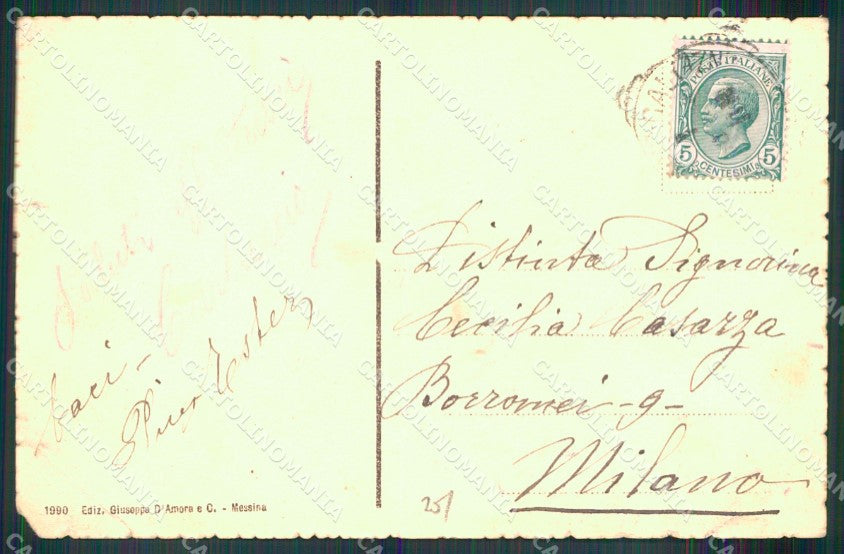 POSTE ITALIANE
5 CENTESIMI 5
Distinta Signorina
Cecilia Casazza
Borromei - 9 -
Milano
Saluti
baci -
Ester
1990 Ediz. Giuseppe D'Amora e C. - Messina
25/
CARTOLINOMANIA